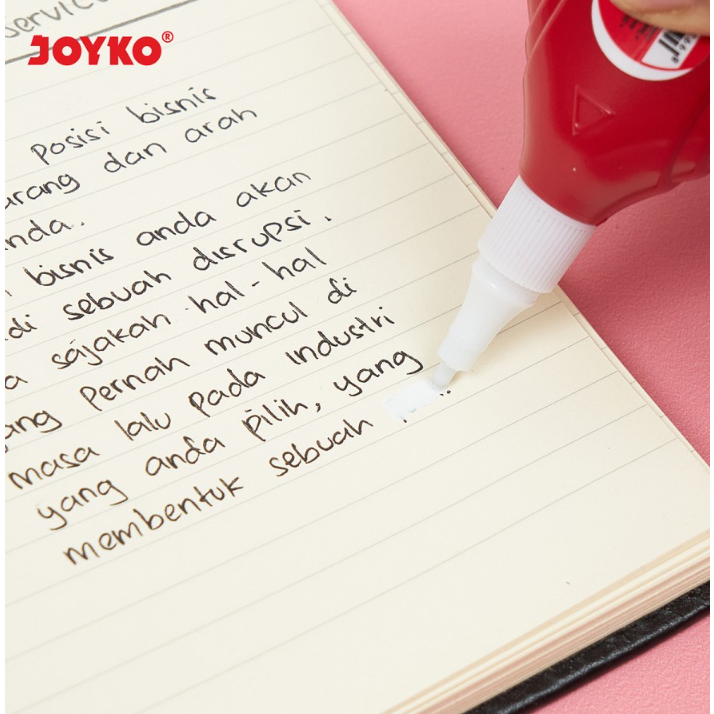 service
JOYKO®
posisi bisnis
arang dan arah
nda.
bisnis anda akan
di sebuah disrupsi.
a sajakah hal-hal
ang pernah muncul di
masa lalu pada industri
yang anda pilih, yang
membentuk sebuah